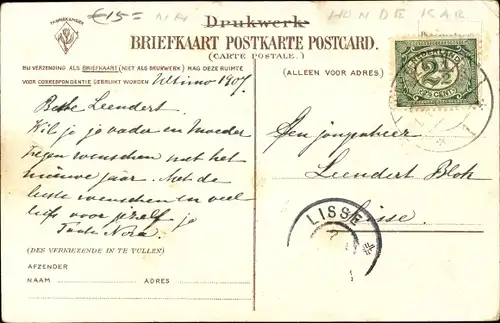 FABRIEKSMERK
€15= NH
HONDE KAR
Drukwerk
BRIEFKAART POSTKARTE POSTCARD.
(CARTE POSTALE.)
BIJ VERZENDING ALS BRIEFKAART (NIET ALS DRUKWERK) MAG DEZE RUIMTE
VOOR CORRESPONDENTIE GEBRUIKT WORDEN
(ALLEEN VOOR ADRES.)
Ultimo 1907.
NEDERLAND
2½
CENT
Beste Leendert.
Wil je je vader en Moeder
zegen wenschen met het
nieuwe jaar. Met de
beste wenschen en veel
liefs voor je zelf je
Tante Nora.
Den jongeheer
Leendert Blok
Lisse.
LISSE
(DES VERKIEZENDE IN TE VULLEN)
AFZENDER
NAAM ADRES